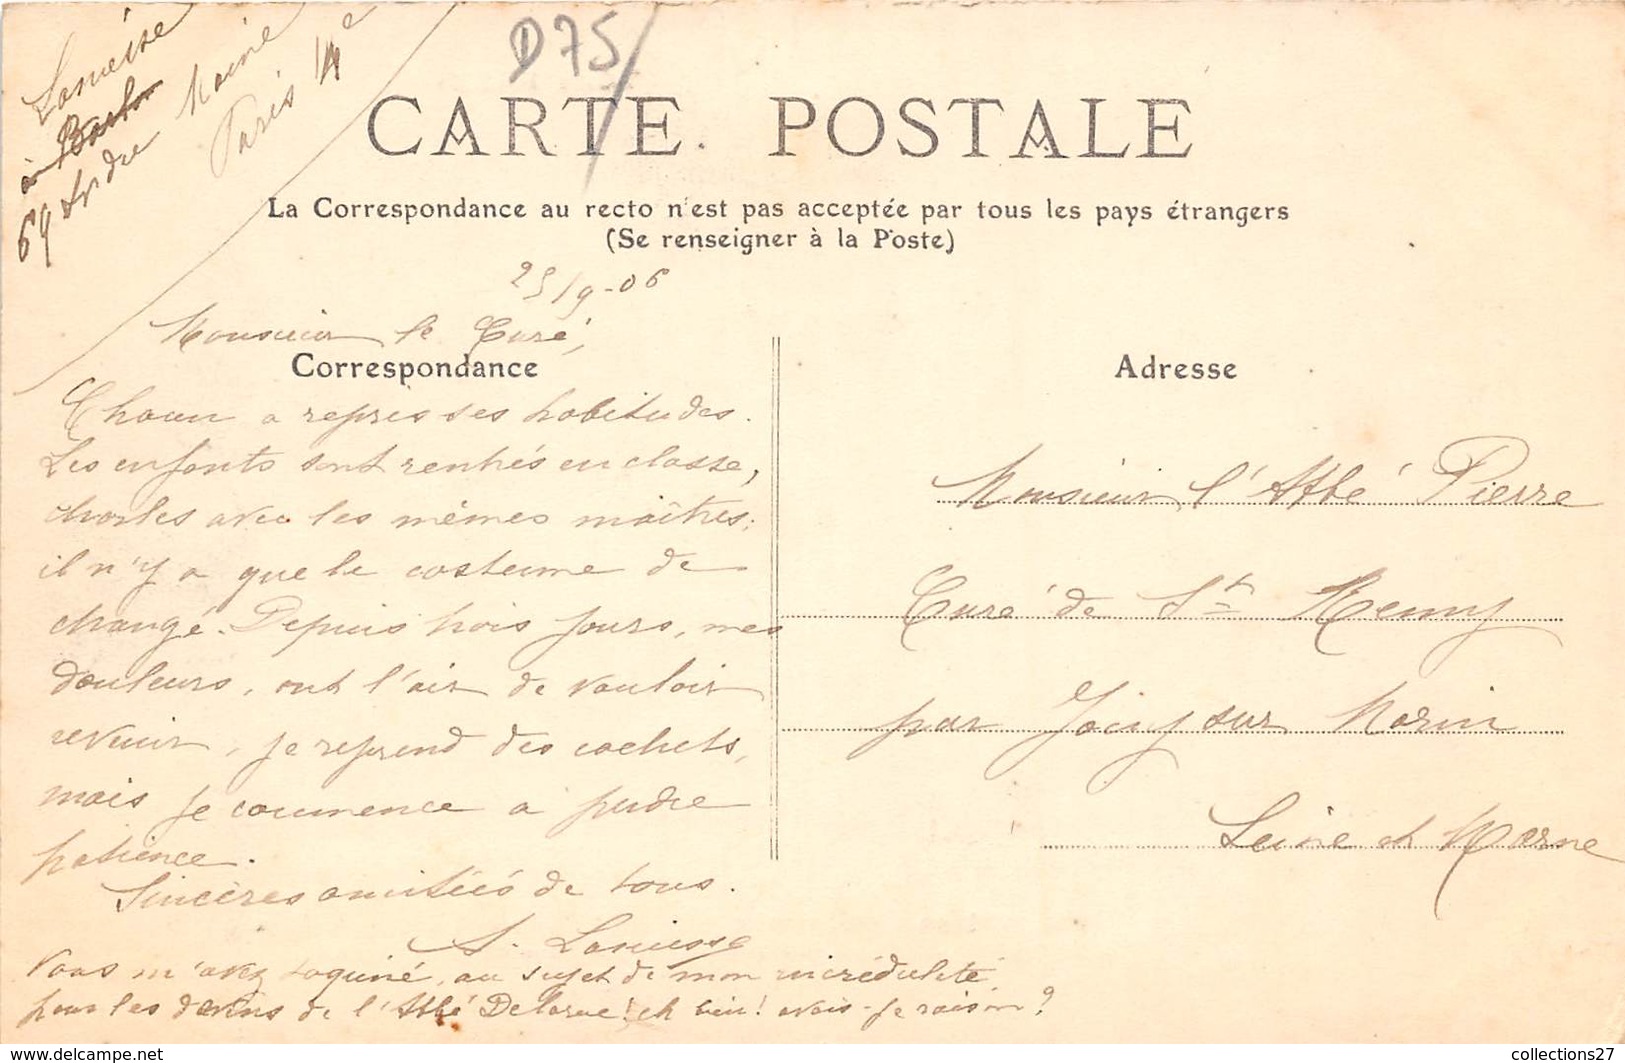 D75
Lanusse
à
69 du Maine
Paris 14e
CARTE POSTALE
La Correspondance au recto n'est pas acceptée par tous les pays étrangers
(Se renseigner à la Poste)
25/9-06
Monsieur le Curé,
Correspondance
Chacun a repris ses habitudes.
Les enfants sont rentrés en classe,
Charles avec les mêmes maîtres;
il n'y a que le costume de
changé. Depuis trois jours, mes
douleurs, ont l'air de vouloir
revenir, je reprend des cachets,
mais je commence a perdre
patience.
Sincères amitiés de tous.
Lanusse
Vous m'avez taquiné, au sujet de mon incrédulité
pour les devins de l'Abbé Delarue! eh bien! avais-je raison?
Adresse
Monsieur l'Abbé Pierre
Curé de St Remy
par Jouy sur Morin
Seine et Marne
collections27